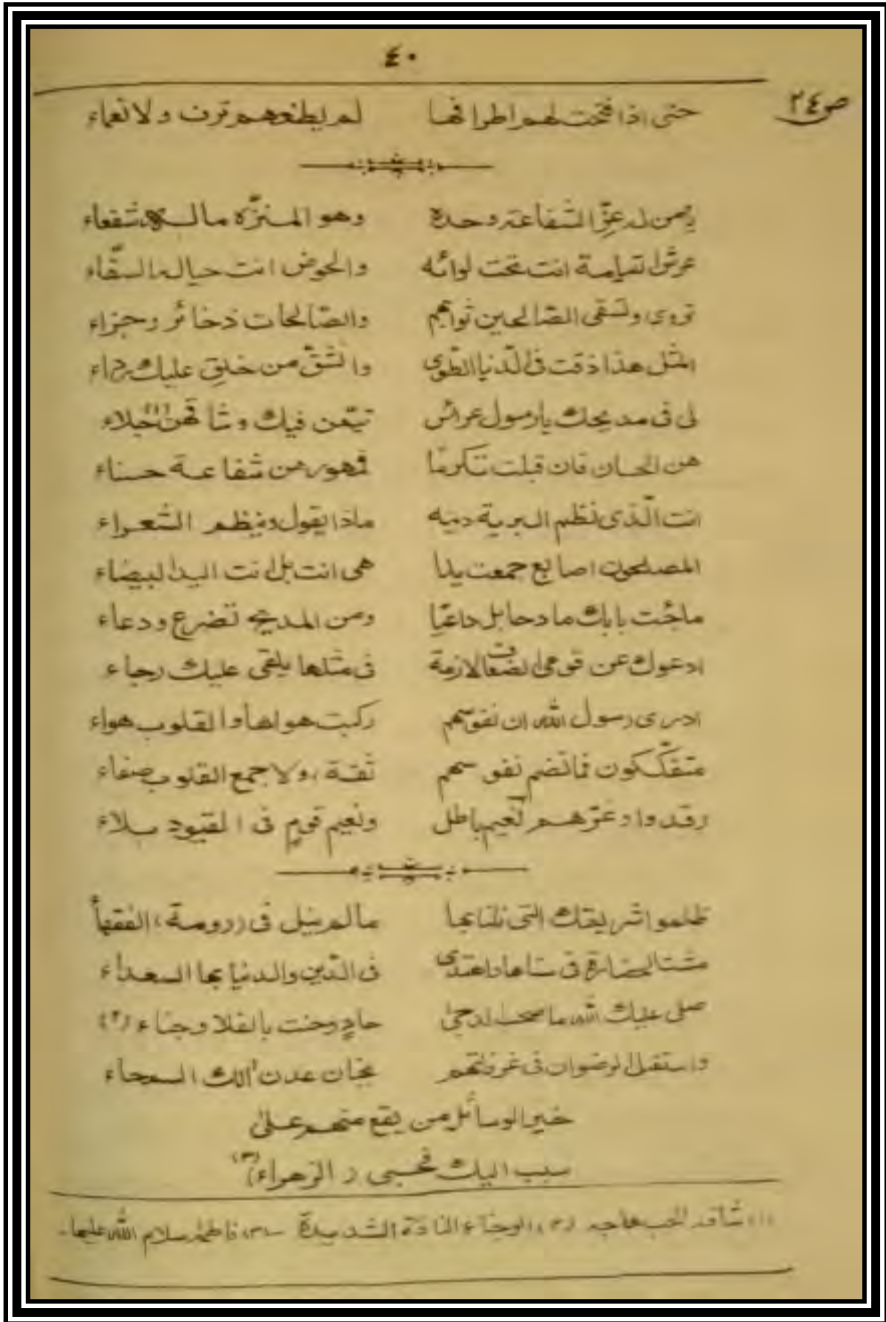 ٤٠
ص٢٤
حتى اذا فتحت لهم اطرافها لم يطغهم ترف ولا نعماء
يا من له عزّ الشفاعة وحده وهو المنزّه ماله شفعاء
عرش القيامة انت تحت لوائه والحوض انت حياله السقّاء
تروى وتسقى الصّالحين ثوابهم والصّالحات ذخائر وجزاء
المثل هذا ذقت فى الدّنيا الطّوى وانشقّ من خلق عليك رداء
لى فى مديحك يا رسول عرائس تيّمن فيك وشاقهن (١) جلاء
هن الحسان فان قبلت تكرمًا فمهورهن شفاعة حسناء
انت الّذى نظم البرية دينه ماذا يقول وينظم الشعراء
المصلحون اصابع جمعت يدا هى انت بل انت اليد البيضاء
ماجئت بابك مادحا بل داعيًا ومن المديح تضرع ودعاء
ادعوك عن قومى الضعاف لازمة فى مثلها يلقى عليك رجاء
ادرى رسول الله ان نفوسهم ركبت هواها والقلوب هواء
متفكّكون فما تضم نفوسهم ثقة، ولا جمع القلوب صفاء
رقدوا وغرّهم نعيم باطل ونعيم قومٍ فى القيود بلاء
ظلموا شريعتك التى نلنا بها مالم ينل فى (رومة) الفقهاء
مشت الحضارة فى سناها واهتدى فى الدّين والدنيا بها السعداء
صلى عليك الله ما صحب الدجى حادٍ وحنت بالفلا وجناء (٢)
واستقبل الرضوان فى غرفاتهم بجنان عدن آلك السمحاء
خير الوسائل من يقع منهم على
سبب اليك فحسبى (الزهراء) (٣)
(١) شاقه الحب هاجه (٢) الوجناء الناقة الشديدة (٣) فاطمة سلام الله عليها.